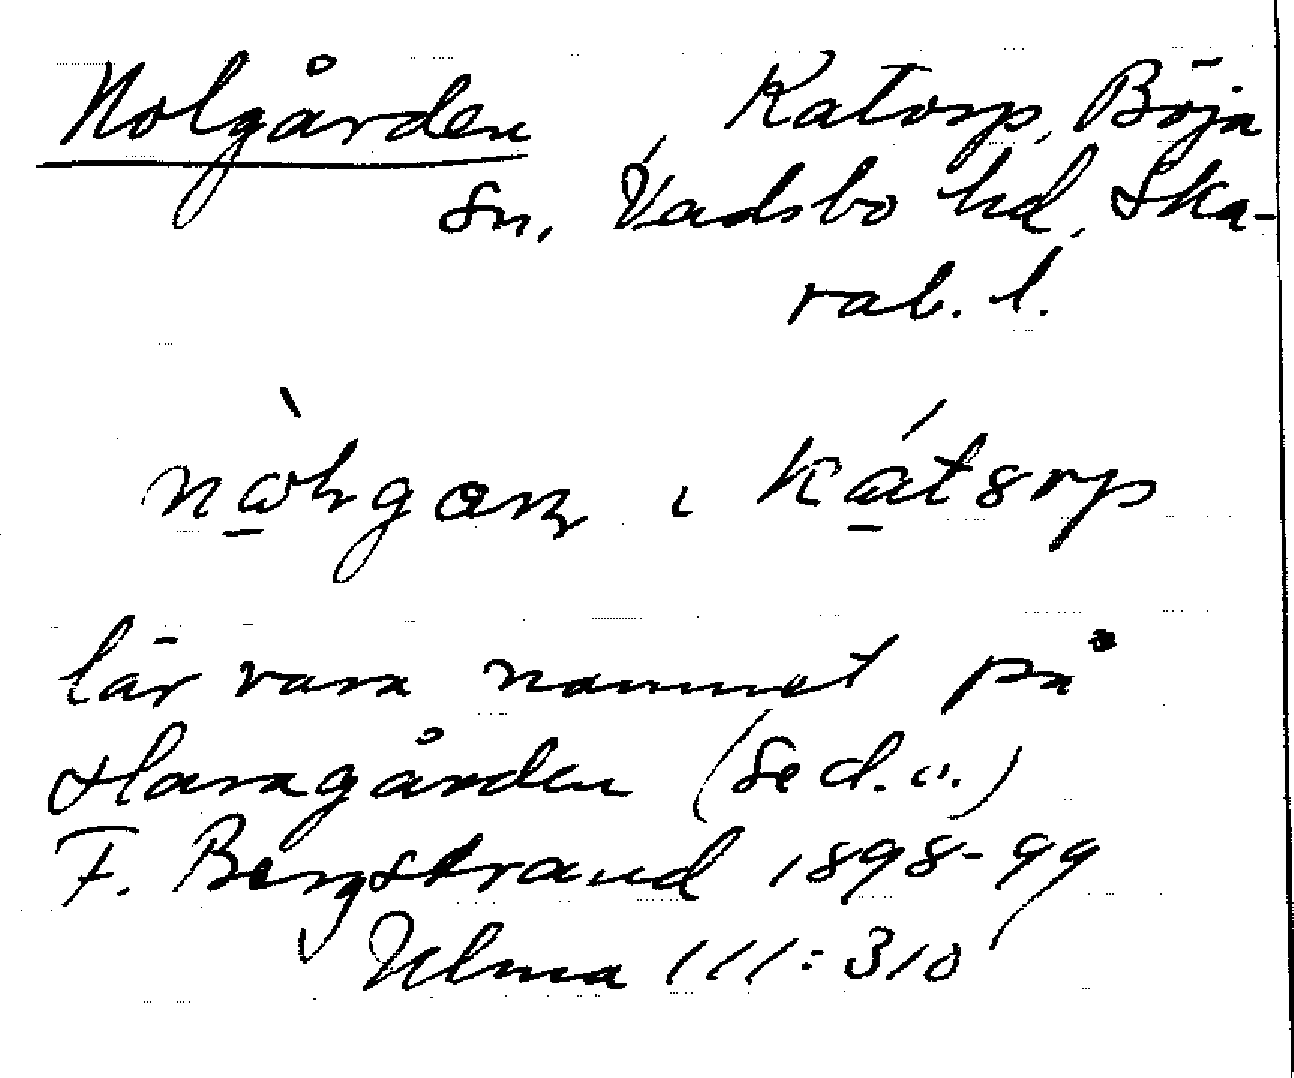 Nolgården, Katorp, Böja
sn, Vadsbo hd, Ska-
rab. l.
i
lär vara namnet på
Haragården (se d.o.)
F. Bergstrand 1898-99
Ulma 111:310